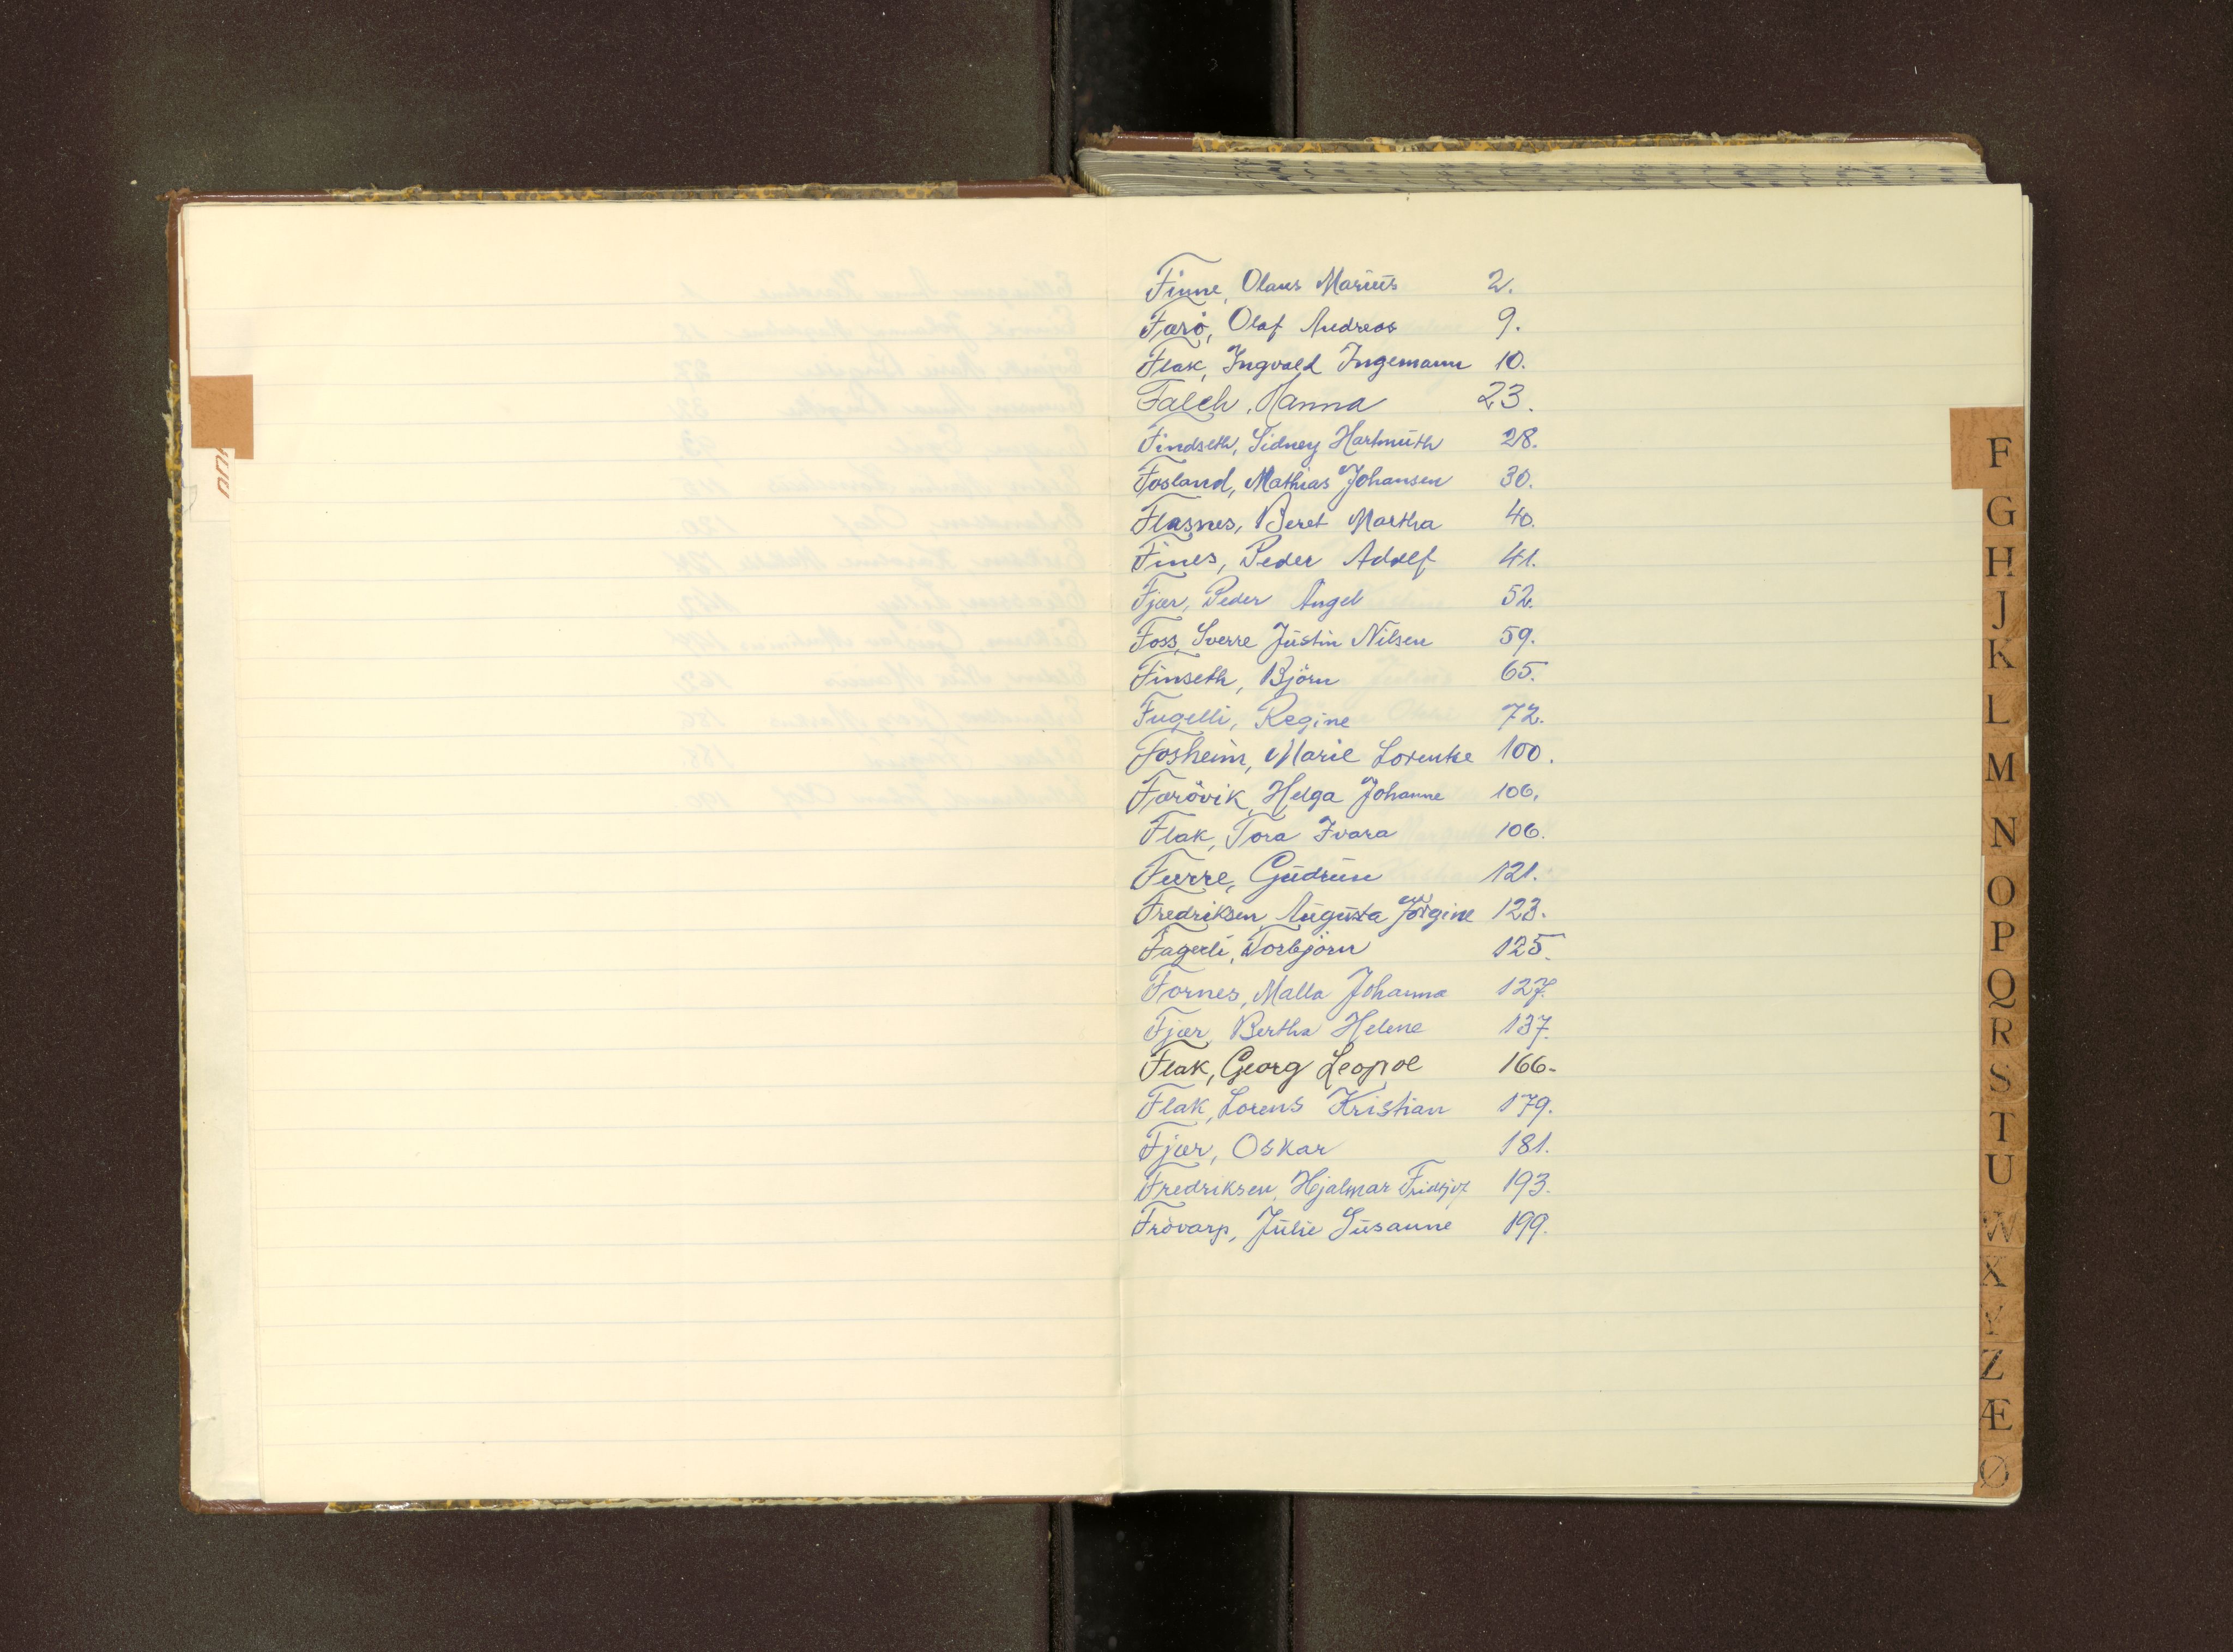 Finne, Olaus Marius 2.
Færö, Olaf Andreas 9.
Flak, Ingvald Ingemann 10.
Falch, Hanna 23.
Findseth, Sidney Hartmuth 28.
Fosland, Mathias Johansen 30.
Flasnes, Beret Martha 40.
Fines, Peder Adolf 41.
Fjær, Peder Angel 52.
Foss, Sverre Justin Nilsen 59.
Finseth, Björn 65.
Fugelli, Regine 72.
Fosheim, Marie Lorentse 100.
Færövik, Helga Johanne 106.
Flak, Tora Ivara 106.
Furre, Gudrun 121.
Fredriksen Augusta Jörgine 123.
Fagerli, Torbjörn 125.
Fornes, Malla Johanna 127.
Fjær, Bertha Helene 137.
Flak, Georg Leopol 166.
Flak, Lorens Kristian 179.
Fjær, Oskar 181.
Fredriksen, Hjalmar Fridtjof 193.
Frövarp, Julie Susanne 199.
F
G
H
J
K
L
M
N
O
P
Q
R
S
T
U
W
X
Y
Z
Æ
Ø